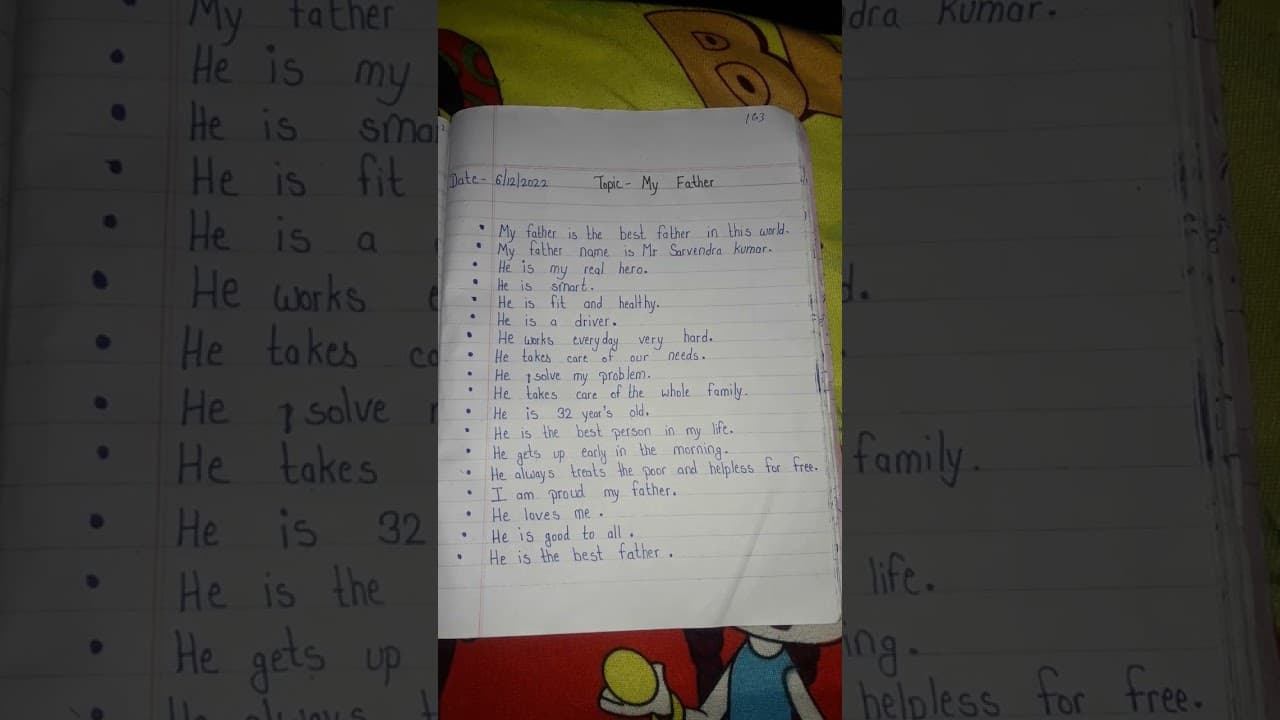 163
Date - 6/12/2022 Topic - My Father
• My father is the best father in this world.
• My father name is Mr Sarvendra Kumar.
• He is my real hero.
• He is smart.
• He is fit and healthy.
• He is a driver.
• He works everyday very hard.
• He takes care of our needs.
• He solve my problem.
• He takes care of the whole family.
• He is 32 year's old.
• He is the best person in my life.
• He gets up early in the morning.
• He always treats the poor and helpless for free.
• I am proud my father.
• He loves me.
• He is good to all.
• He is the best father.